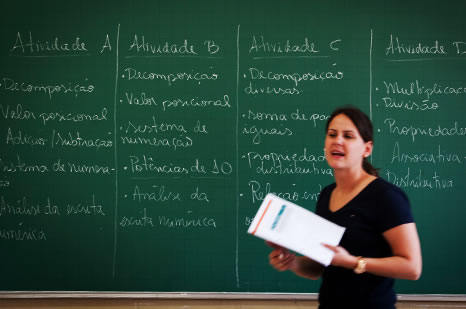 Atividade A
Decomposição
Valor posicional
Adição/subtração
sistema de numera-
Análise da escrita
numérica
Atividade B
• Decomposição
• Valor posicional
• sistema de
numeração
• Potências de 10
• Análise da
escrita numérica
Atividade C
• Decomposição
diversas
• soma de
iguais
• Propriedade
distributiva
• Relação
Atividade D
• Multiplicação
Divisão
• Propriedades
Associativa
Distributiva